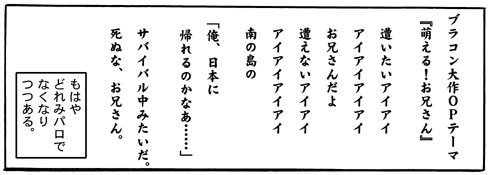 ブラコン大作OPテーマ
『萌える！お兄さん』
遭いたいアイアイ
アイアイアイアイ
お兄さんだよ
遭えないアイアイ
アイアイアイアイ
南の島の
「俺、日本に
帰れるのかなあ……」
サバイバル中みたいだ。
死ぬな、お兄さん。
もはや
どれみパロで
なくなり
つつある。